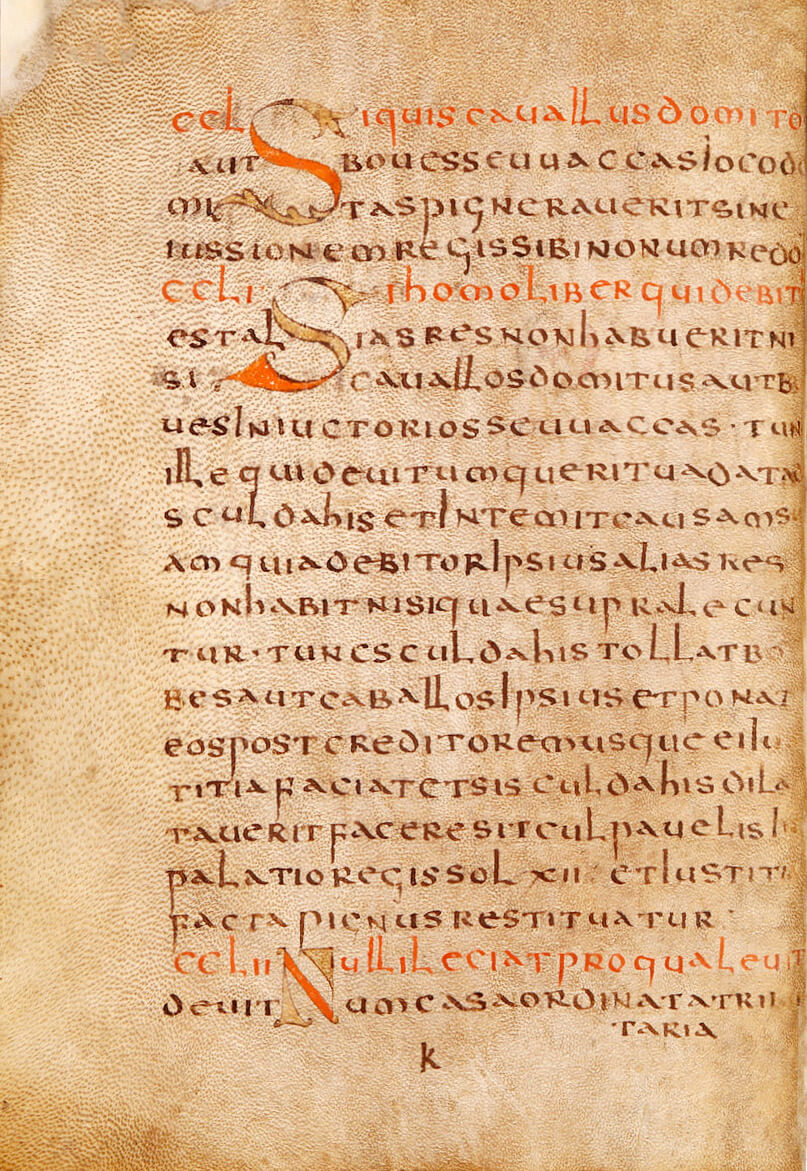 ccl Si quis cauallus domito
aut boues seu uaccas ioco
mi tas pignerauerit sine
iussionem regis sibi
ccli Si homo liber qui debit
est alias res non habuerit ni
si cauallos domitus aut b
ues iniuctorios seu uaccas · tun
ille qui deuitum querit uadat a
sculdahis et intemit causam s
am quia debitor ipsius alias res
non habit nisi quae supra lecun
tur · tunc sculdahis tollat bo
bes aut caballos ipsius et ponat
eos post creditorem usque ei iu
titia faciat et si sculdahis dila
tauerit facere sit culpauelis in
palatio regis sol xii · et iustiti
facta pignus restituatur ·
cclii Nulli leciat pro qualeuit
deuitum casa ordinata tri
taria
k